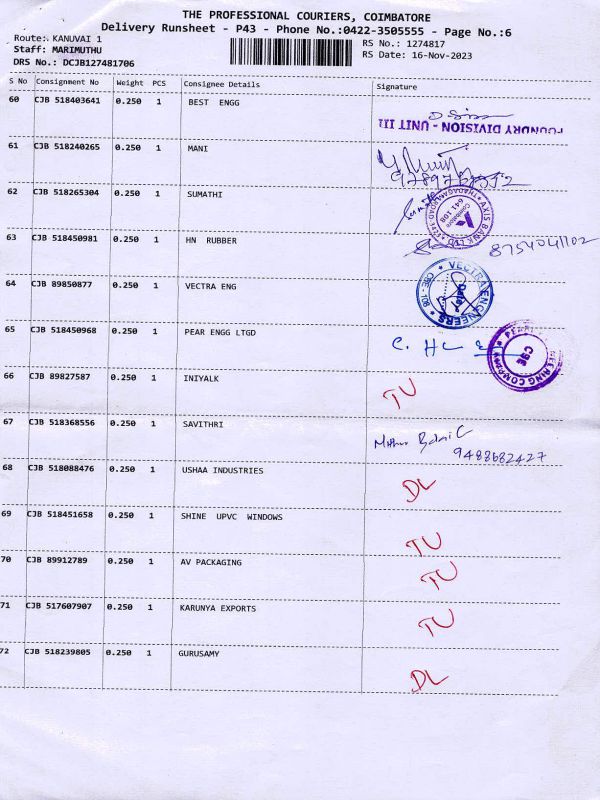 THE PROFESSIONAL COURIERS, COIMBATORE
Delivery Runsheet - P43 - Phone No.:0422-3505555 - Page No.:6
Route: KANUVAI 1 RS No.: 1274817
Staff: MARIMUTHU RS Date: 16-Nov-2023
DRS No.: DCJB127481706
S No Consignment No Weight PCS Consignee Details Signature
60 CJB 518403641 0.250 1 BEST ENGG
FOUNDRY DIVISION - UNIT III
61 CJB 518240265 0.250 1 MANI
62 CJB 518265304 0.250 1 SUMATHI
AXIS BANK LTD
Coimbatore
641 108
63 CJB 518450981 0.250 1 HN RUBBER 8754041102
64 CJB 89850877 0.250 1 VECTRA ENG
VECTRA ENGINEERS
CBE - 108
65 CJB 518450968 0.250 1 PEAR ENGG LTGD
CBE
66 CJB 89827587 0.250 1 INIYALK TU
67 CJB 518368556 0.250 1 SAVITHRI
9488682427
68 CJB 518088476 0.250 1 USHAA INDUSTRIES DL
69 CJB 518451658 0.250 1 SHINE UPVC WINDOWS TU
70 CJB 89912789 0.250 1 AV PACKAGING TU
71 CJB 517607907 0.250 1 KARUNYA EXPORTS TU
72 CJB 518239805 0.250 1 GURUSAMY DL